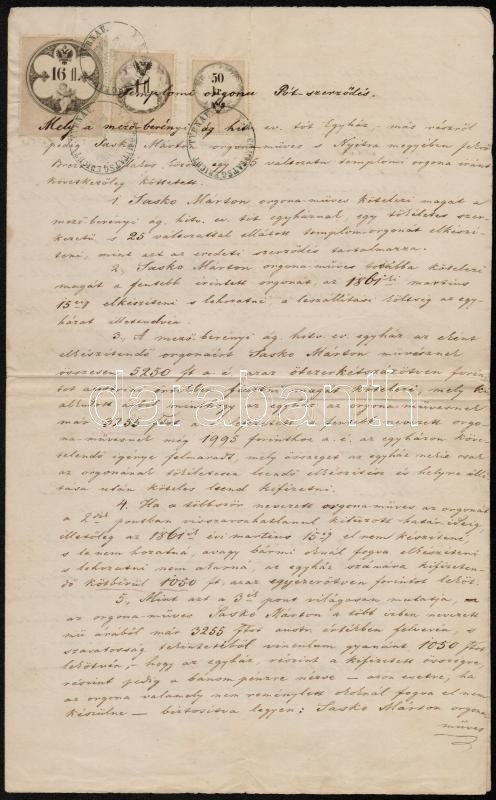 16 fl.
1 fl
50 kr
Templomi orgona Pót-szerződés.
Mely a mező-berényi ág. hitv. ev. tót Egyház, más részről
pedig Sasko Márton orgona-műves s Nyitra megyében
25 változatu templomi orgona iránt
következőleg köttetett.
1. Sasko Márton orgona-műves kötelezi magát a
mező-berényi ág. hitv. ev. tót egyháznak, egy tökéletes szer-
kezetü s 25 változattal ellátott templom-orgonát elkészí-
teni, mint azt az eredeti szerződés tartalmazza.
2. Sasko Márton orgona-műves továbbá kötelezi
magát a fentebb érintett orgonát, az 1861iki martius
15ig elkészíteni s lehozatni, a leszállítási költség az egy-
házat illetendvén.
3. A mező-berényi ág. hitv. ev. egyház az ekként
elkészítendő orgonáért Sasko Márton művésznek
összesen 5250 ft a. é. azaz ötezerkétszázötven forin-
tot austriai értékben fizetni magát kötelezi, mely ki
alkudott árból minthogy az egyház az orgona-művesnek
már 3255 ftot a. é. kifizetett, a fentebb nevezett orgo-
na-művesnek még 1995 forinthoz a. é. az egyházon köve-
telendő igénye felmaradt, mely összeget az egyház neki csak
az orgonának tökéletesen leendő elkészítése és helyre állí-
tása után köteles leend kifizetni.
4. Ha a többször nevezett orgona-műves az orgonát
a 2dik pontban visszavonhatlanul kitűzött határidőig
illetőleg az 1861ik évi martius 15ig el nem készítené,
s le nem hozatná, avagy bármi oknál fogva elkészíteni
s lehozatni nem akarná, az egyház számára kifizeten-
dő kötbérül 1050 ft, azaz egyezerötven forintot leköt.
5. Mint azt a 3ik pont világosan mutatja,
az orgona-műves Sasko Márton a több izben nevezett
mű árából már 3255 ftot austr. értékben felvevén, s
szavatosság tekintetéből vinculum gyanánt, 1050 ftot
lekötvén, hogy az egyház, részint a kifizetett összegre,
részint pedig a bánompénzre nézve — azon esetre, ha
az orgona valamely nem reménylett oknál fogva el nem
készülne — biztosítva legyen: Sasko Márton orgona-
műves
darabanth